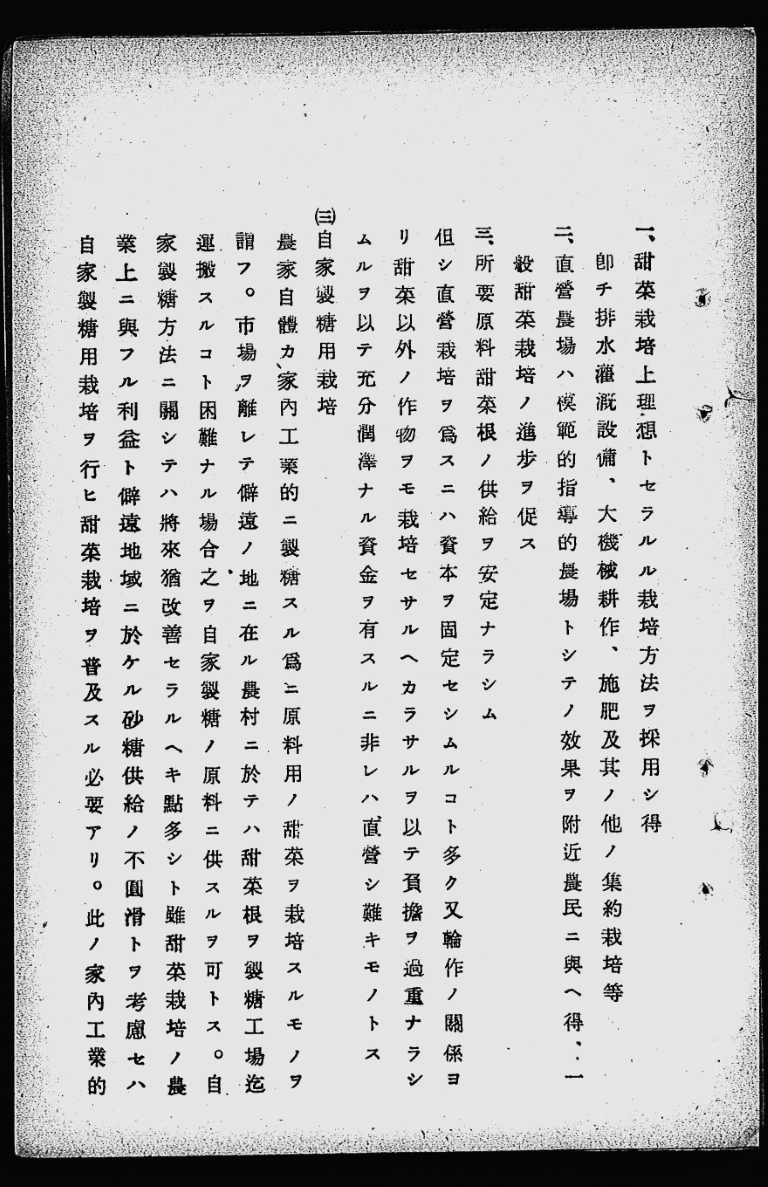 一、甜菜栽培上理想トセラルル栽培方法ヲ採用シ得
卽チ排水灌漑設備、大機械耕作、施肥及其ノ他ノ集約栽培等
二、直營農場ハ模範的指導的農場トシテノ效果ヲ附近農民ニ與ヘ得、一
般甜菜栽培ノ進步ヲ促ス
三、所要原料甜菜根ノ供給ヲ安定ナラシム
但シ直營栽培ヲ爲スニハ資本ヲ固定セシムルコト多ク又輪作ノ關係ヨ
リ甜菜以外ノ作物ヲモ栽培セサルヘカラサルヲ以テ負擔ヲ過重ナラシ
ムルヲ以テ充分潤澤ナル資金ヲ有スルニ非レハ直營シ難キモノトス
㈢自家製糖用栽培
農家自體カ家內工業的ニ製糖スル爲ニ原料用ノ甜菜ヲ栽培スルモノヲ
謂フ。市場ヲ離レテ僻遠ノ地ニ在ル農村ニ於テハ甜菜根ヲ製糖工場迄
運搬スルコト困難ナル場合之ヲ自家製糖ノ原料ニ供スルヲ可トス。自
家製糖方法ニ關シテハ將來猶改善セラルヘキ點多シト雖甜菜栽培ノ農
業上ニ與フル利益ト僻遠地域ニ於ケル砂糖供給ノ不圓滑トヲ考慮セハ
自家製糖用栽培ヲ行ヒ甜菜栽培ヲ普及スル必要アリ。此ノ家內工業的